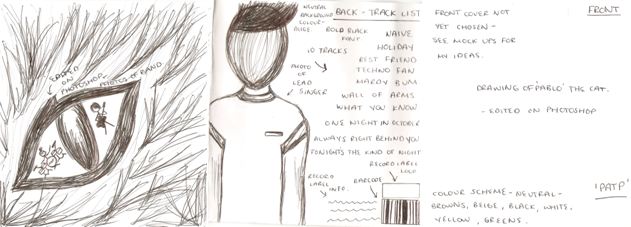 EDITED
ON
PHOTOSHOP
PHOTOS OF BAND
NEUTRAL
BACKGROUND
COLOUR -
BEIGE
BACK - TRACK LIST
BOLD BLACK
FONT
10 TRACKS
PHOTO
OF
LEAD
SINGER
NAIVE
HOLIDAY
BEST FRIEND
TECHNO FAN
MARDY BUM
WALL OF ARMS
WHAT YOU KNOW
ONE NIGHT IN OCTOBER
ALWAYS RIGHT BEHIND YOU
TONIGHTS THE KIND OF NIGHT
RECORD LABEL
LOGO
RECORD
LABEL
INFO.
BARCODE
FRONT COVER NOT
YET CHOSEN -
SEE MOCK UPS FOR
MY IDEAS.
FRONT
DRAWING OF 'PABLO' THE CAT.
- EDITED ON PHOTOSHOP
COLOUR SCHEME - NEUTRAL -
BROWNS, BEIGE, BLACK, WHITE.
YELLOW, GREENS.
'PATP'